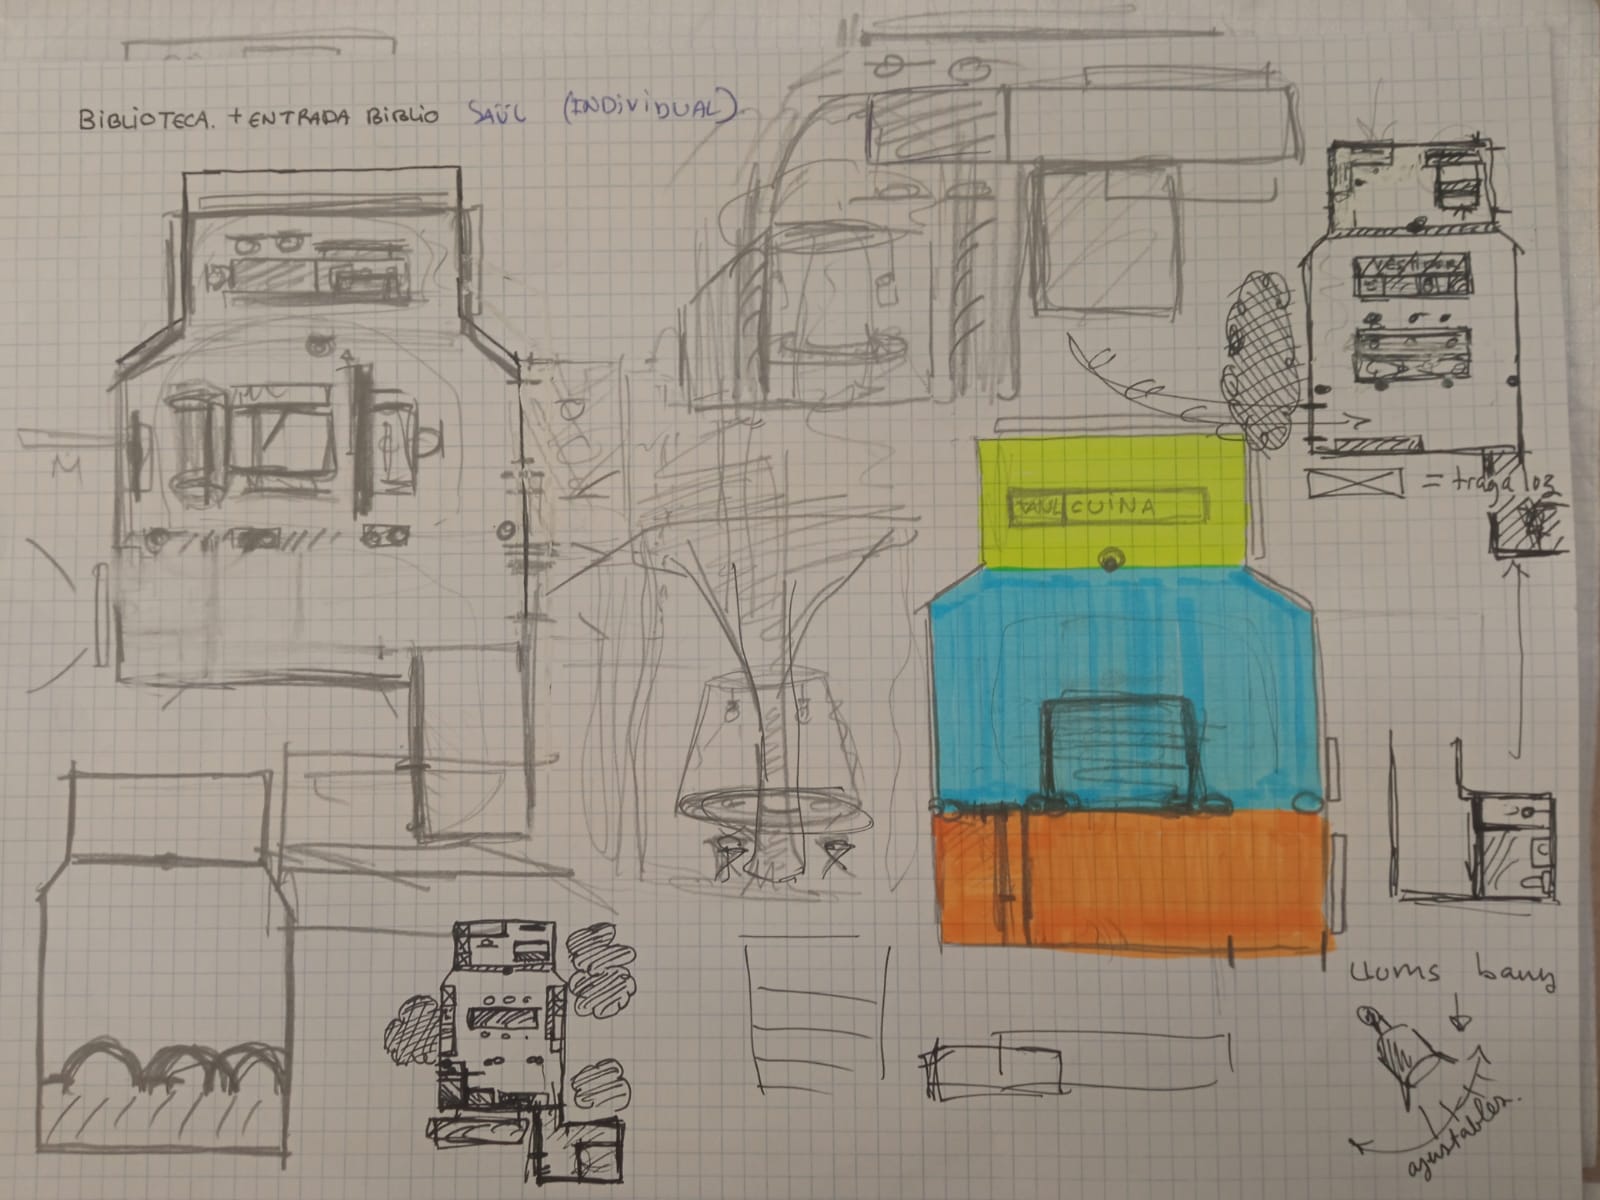 BIBLIOTECA. + ENTRADA BIBLIO SAÜL (INDIVIDUAL).
VESTIDOR
M
= tragaloz
CUINA
LLUMS bany
ajustables.